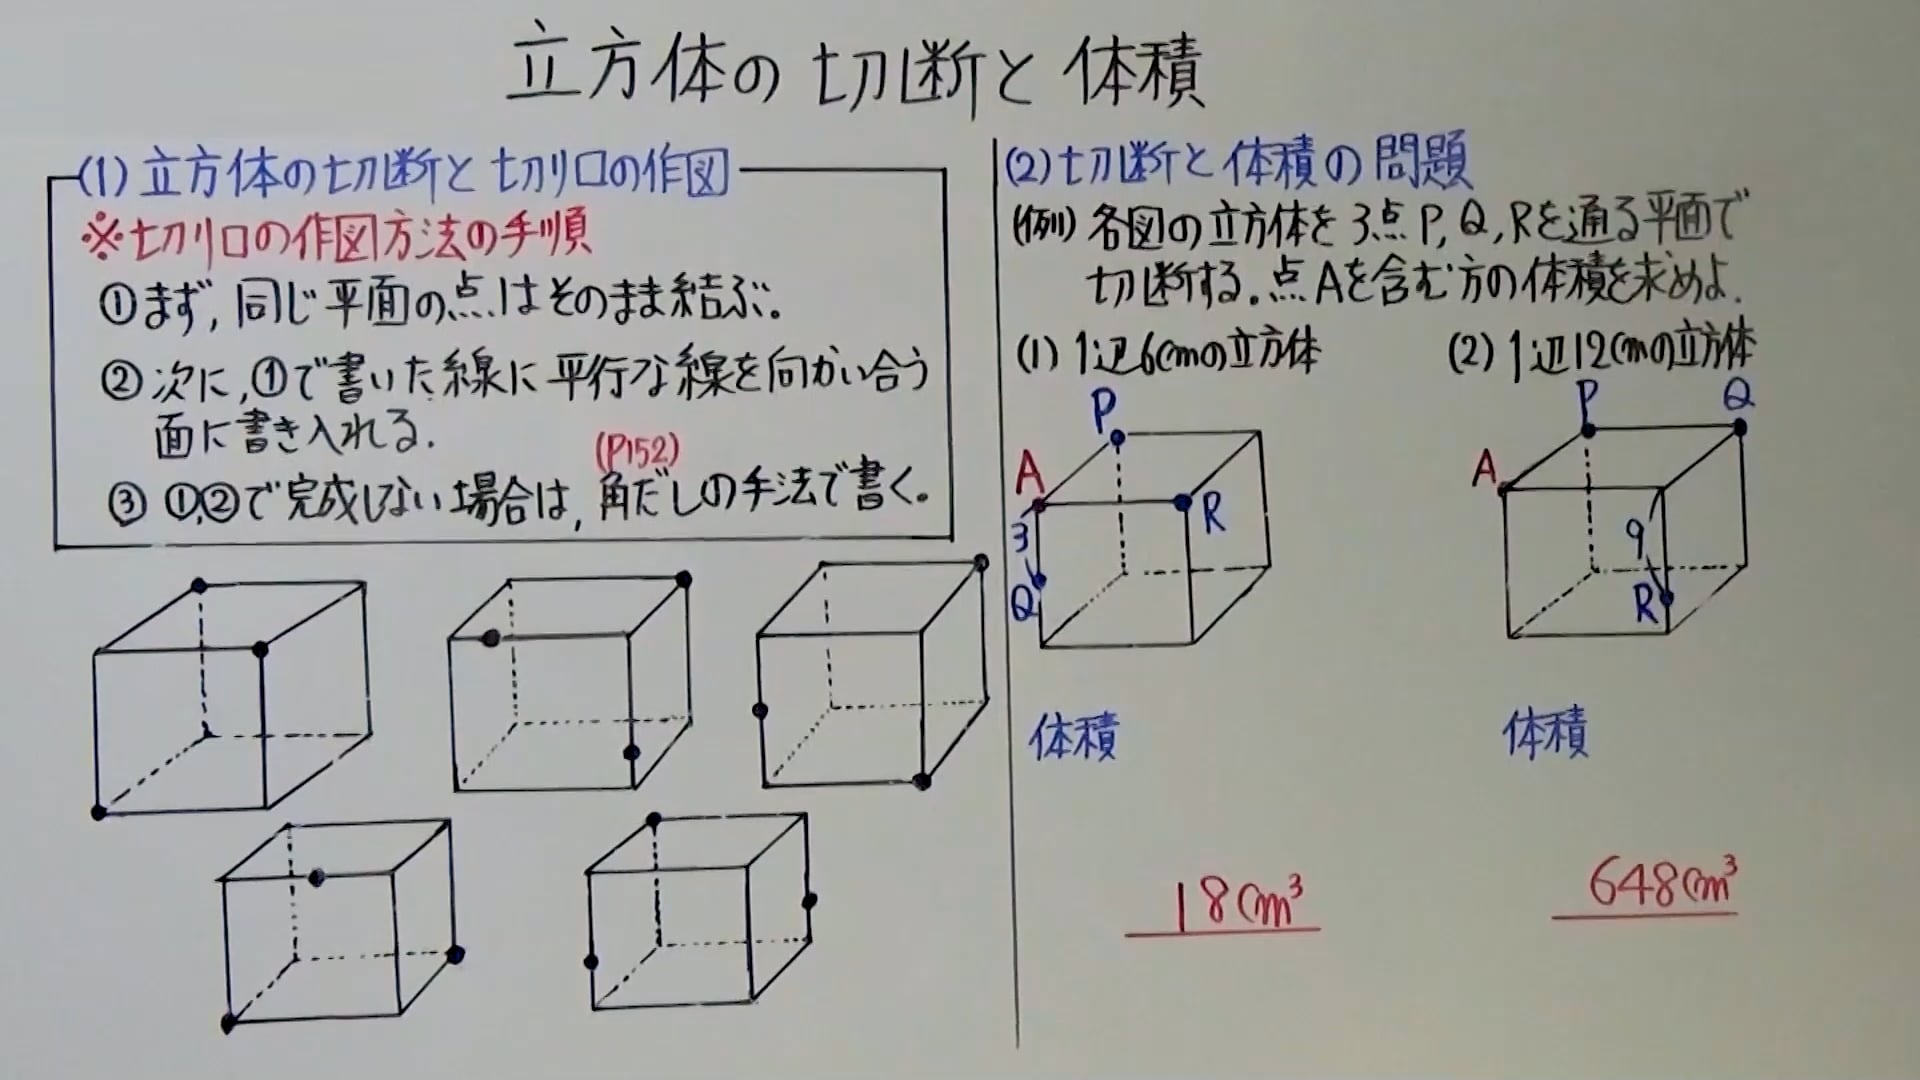 立方体の切断と体積
(1) 立方体の切断と切り口の作図
※切り口の作図方法の手順
①まず,同じ平面の点はそのまま結ぶ。
②次に,①で書いた線に平行な線を向かい合う
面に書き入れる.
(P152)
③ ①,②で完成しない場合は,角だしの手法で書く。
(2) 切断と体積の問題
(例) 各図の立方体を3点P,Q,Rを通る平面で
切断する。点Aを含む方の体積を求めよ.
(1) 1辺6cmの立方体
P
A
R
3
Q
体積
18cm³
(2) 1辺12cmの立方体
P
Q
A
9
R
体積
648cm³